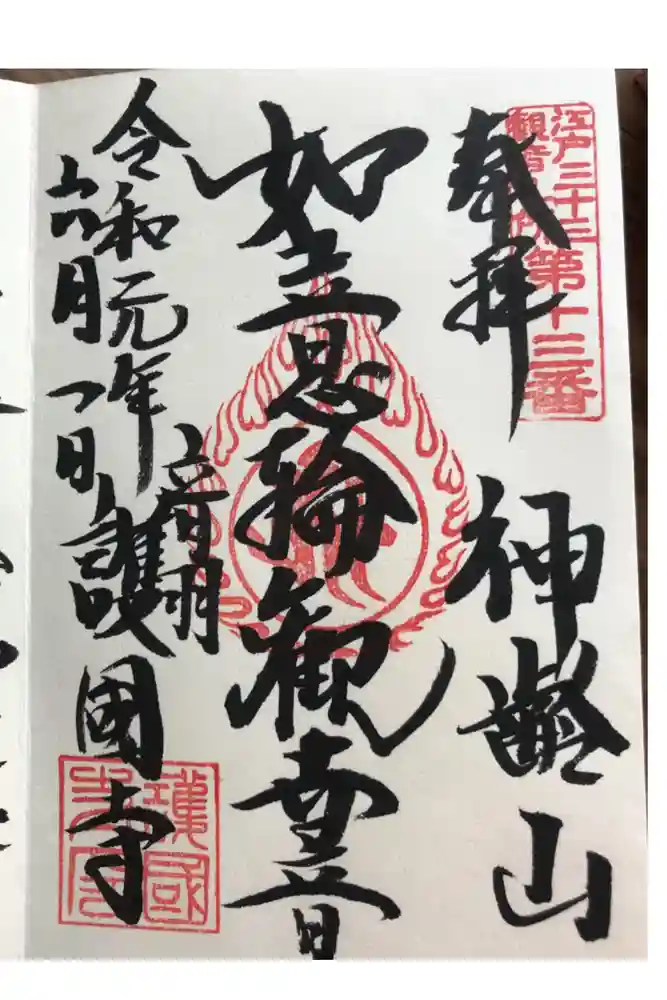 江戸三十三
観音札所第十三番
奉拝
神齢山
如意輪観世音
音羽
護國寺
令和元年
六月一日
護國